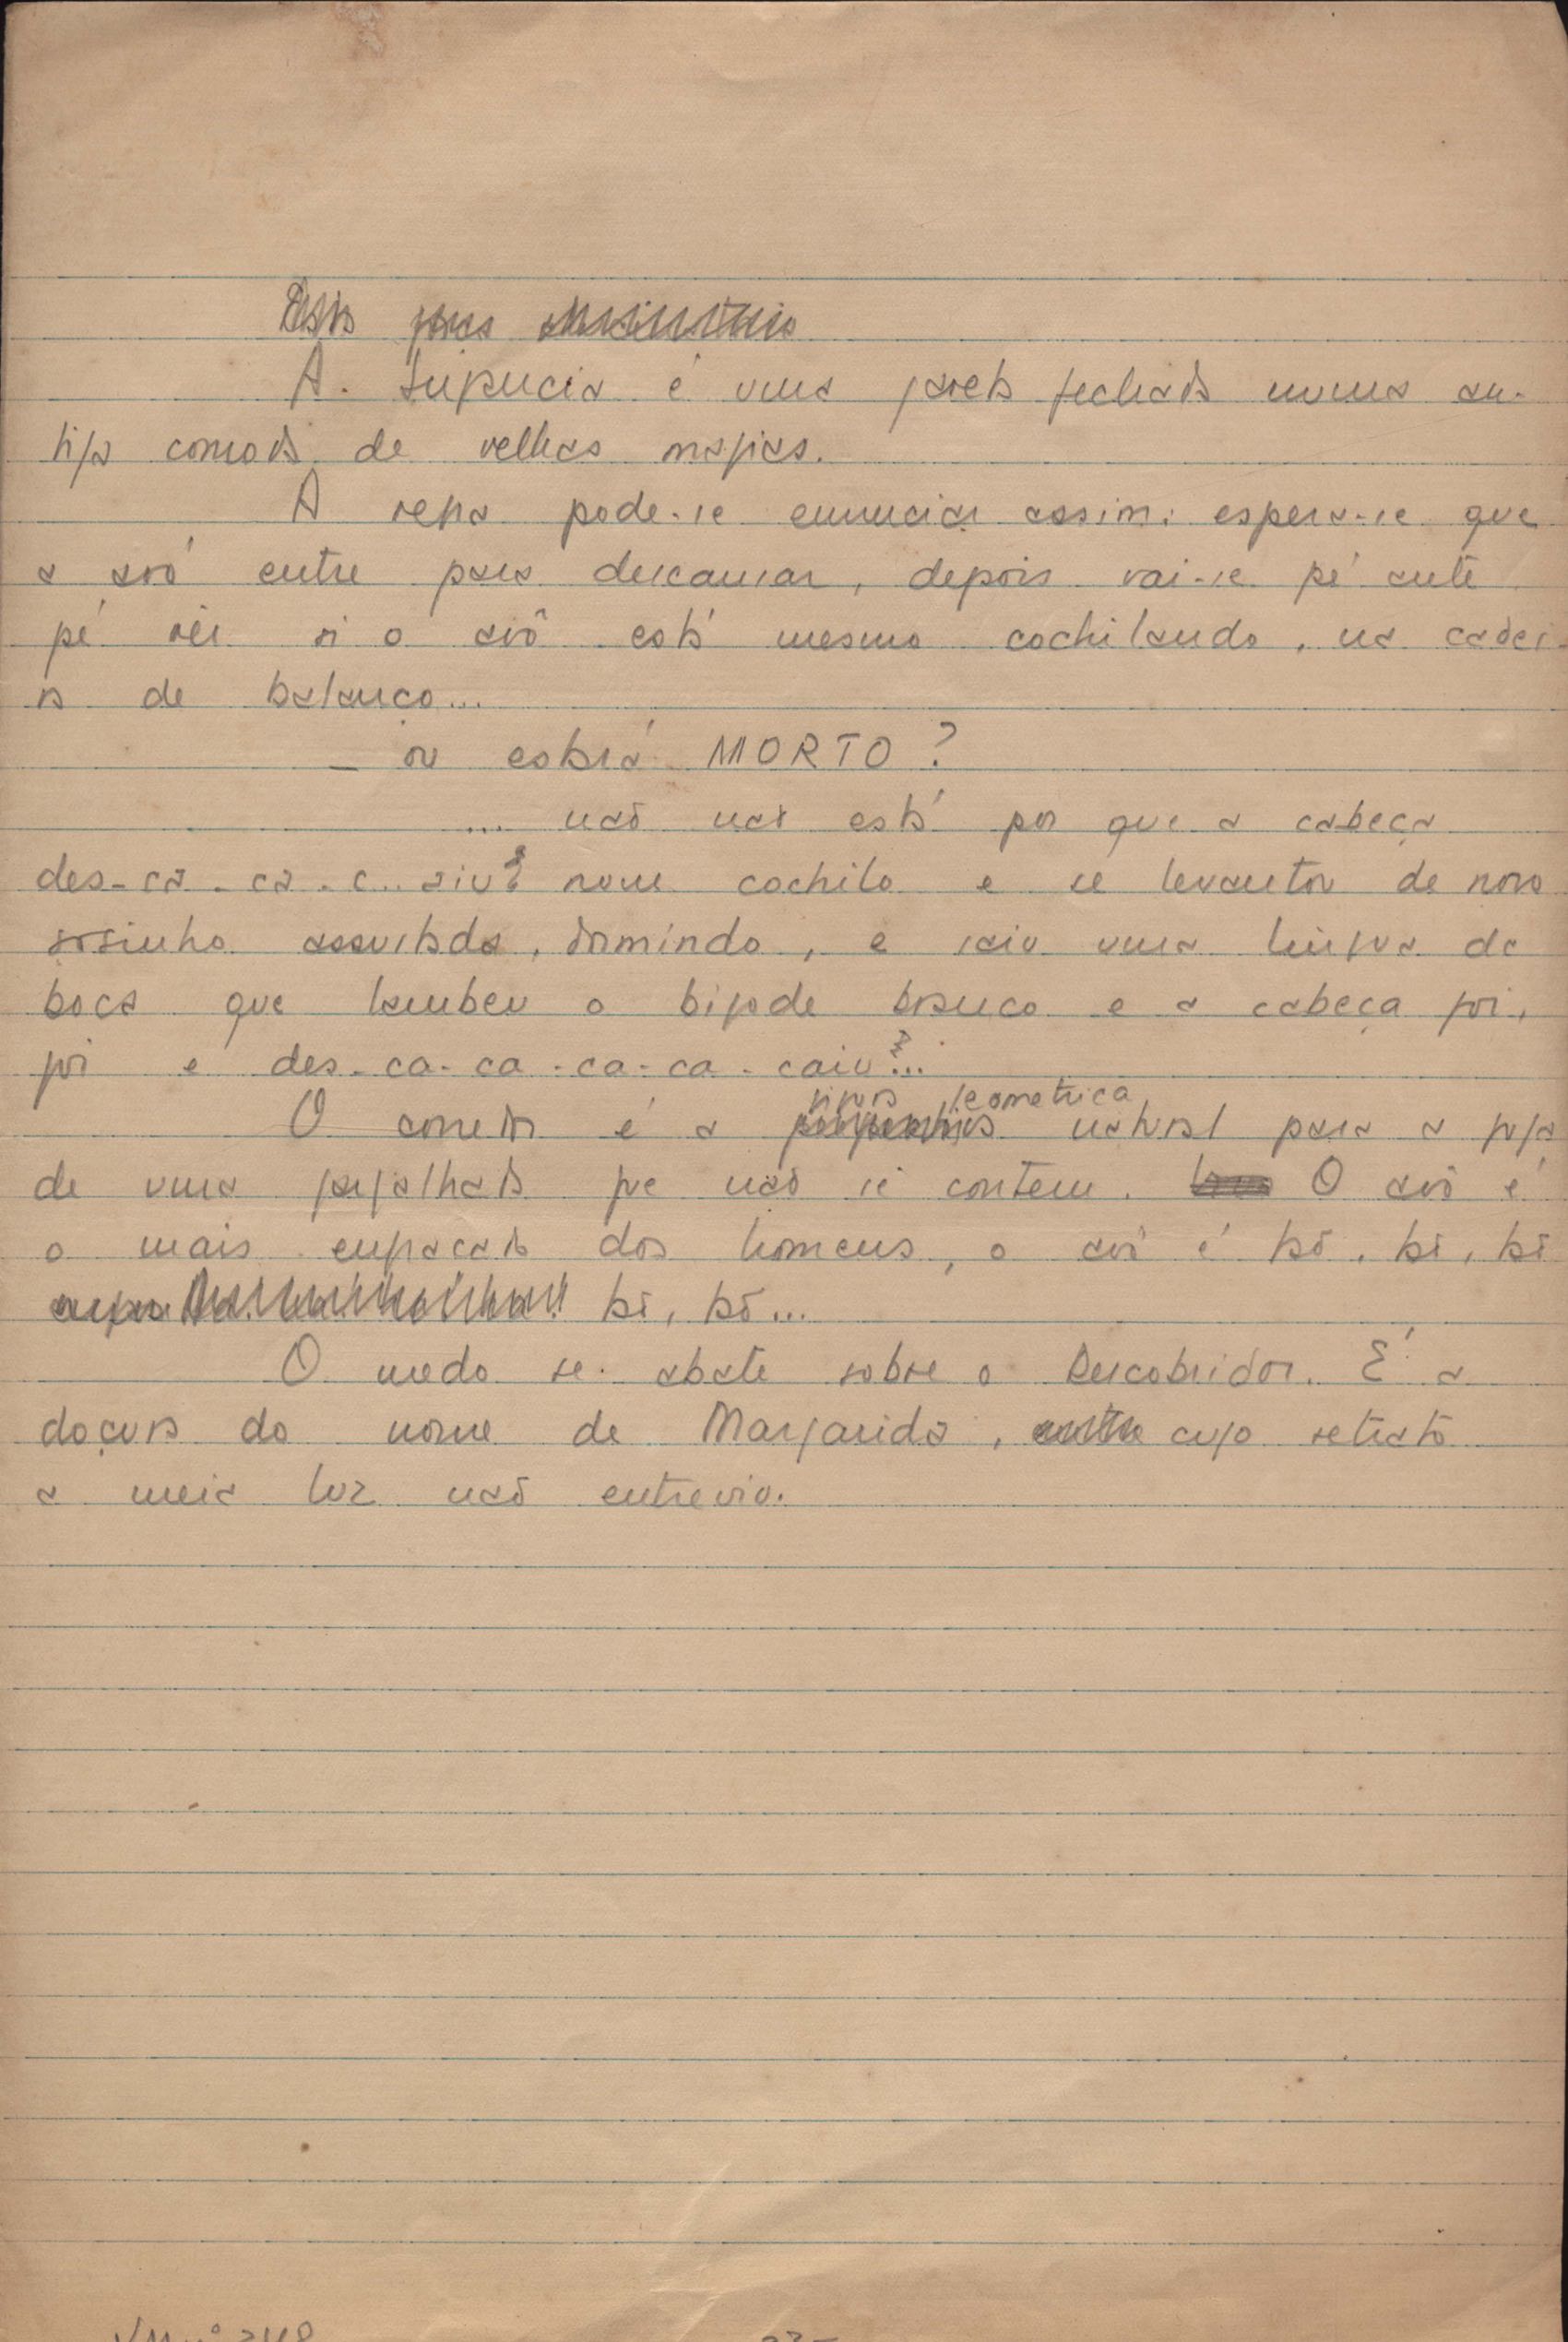 A. Supucia é uma gaveta fechada numa an-
tiga comoda de velhas magias.
A regra pode-se enunciar assim: espera-se que
a avó entre para descansar, depois vai-se pé ante
pé vêr si o avô está mesmo cochilando, na cadei-
ra de balanço...
— ou estará MORTO?
... não não está por que a cabeça
des-ca-ca-c...aiu? num cochilo e se levantou de novo
sosinha assustada, dormindo, e saiu uma lingua da
boca que lambeu o bigode branco e a cabeça foi,
foi e des-ca-ca-ca-ca-caiu?...
figura geometrica
O corredor é a natural para a fuga
de uma gargalhada que não se contem. O avô é
o mais engraçado dos homens, o avô é bô, bô, bô
bô, bô...
O medo se abate sobre o Descobridor. É a
doçura do nome de Margarida, cujo retrato
a meia luz não entreviu.